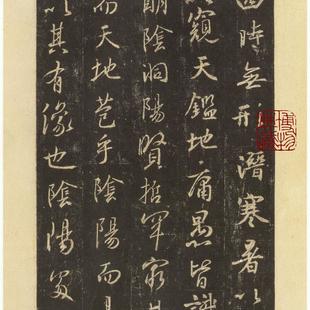 四時無形潛寒暑以
以窺天鑑地庸愚皆識
明陰洞陽賢哲罕窮其
而天地苞乎陰陽而
以其有像也陰陽處